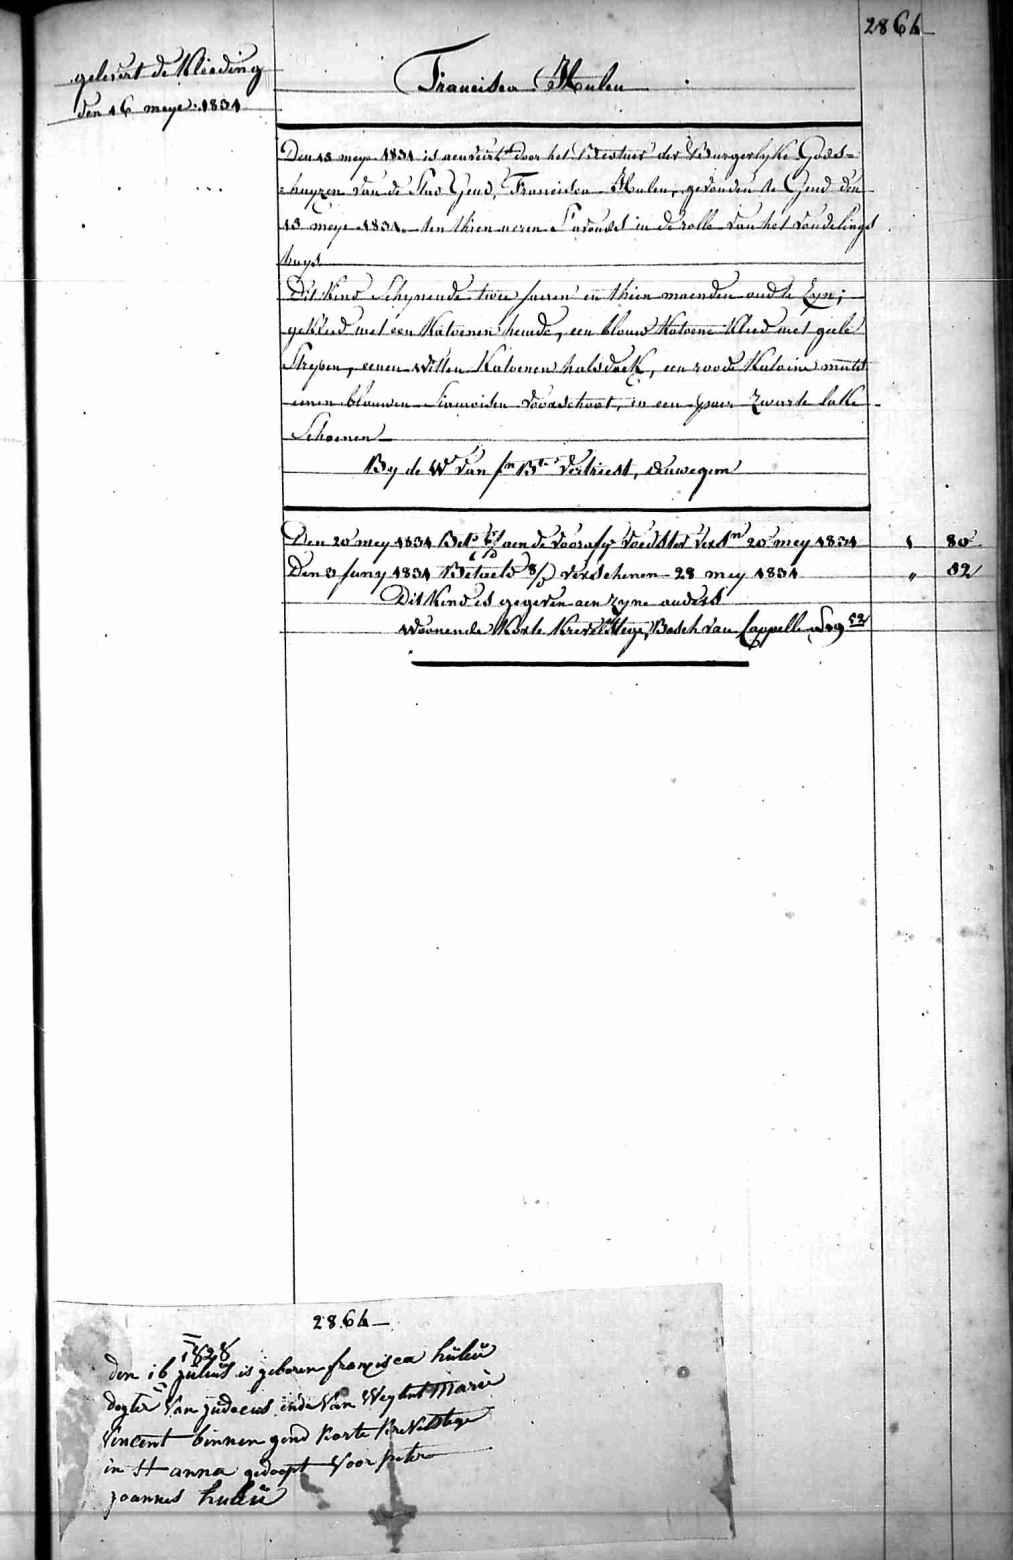 2864
gelevert de Kleeding
den 16 meye 1831
Francisca Huleu
Den 13 meye 1831 is aenveird door het Bestuer der Burgerlyke Gods=
=huyzen van de Stad Gend, Francisca Huleu, gevonden te Gend den
13 meye 1831 ten thien ueren s'avonds in de rolle van het vondelings
huys
Dit kind schynende twee jaeren en thien maenden oud te zyn;
gekleed met een Katoenen hemde, een blauw Katoene Kleed met geele
strepen, eenen witten Katoenen halsdoek, een roode Katoine muts
eenen blauwen Siamoisen voorschoot, en een paer zwarte
Schoenen
By de We van Jn Bte Vertriest,
Den 20 mey 1831 aen de voedster 20 mey 1831 1 80
Den 3 juny 1831 Betaeld verschenen 28 mey 1831 " 82
Dit Kind is gegeven aen zyne ouders
woonende Korte Krevelstege, Bosch van Cappelle
2864
1828
den 16 julius is geboren francisca huleu
dogter van judocus ende van Marie
Vincent binnen gend Korte Krevelstege
in St anna gedoopt voor peter
joannes huleu